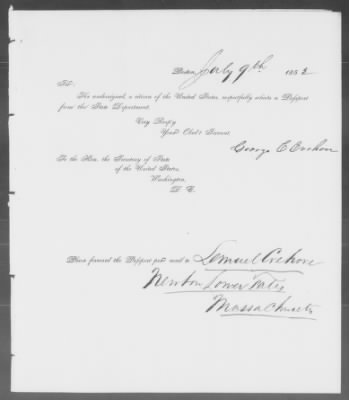 Boston, July 9th 1852
Sir:
The undersigned, a citizen of the United States, respectfully solicits a Passport
from the State Department.
Very Respy
Your Obdt Servant,
George C Crehore
To the Hon. the Secretary of State
of the United States,
Washington,
D. C.
Please forward the Passport per mail to Lemuel Crehore
Newton Lower Falls
Massachusetts